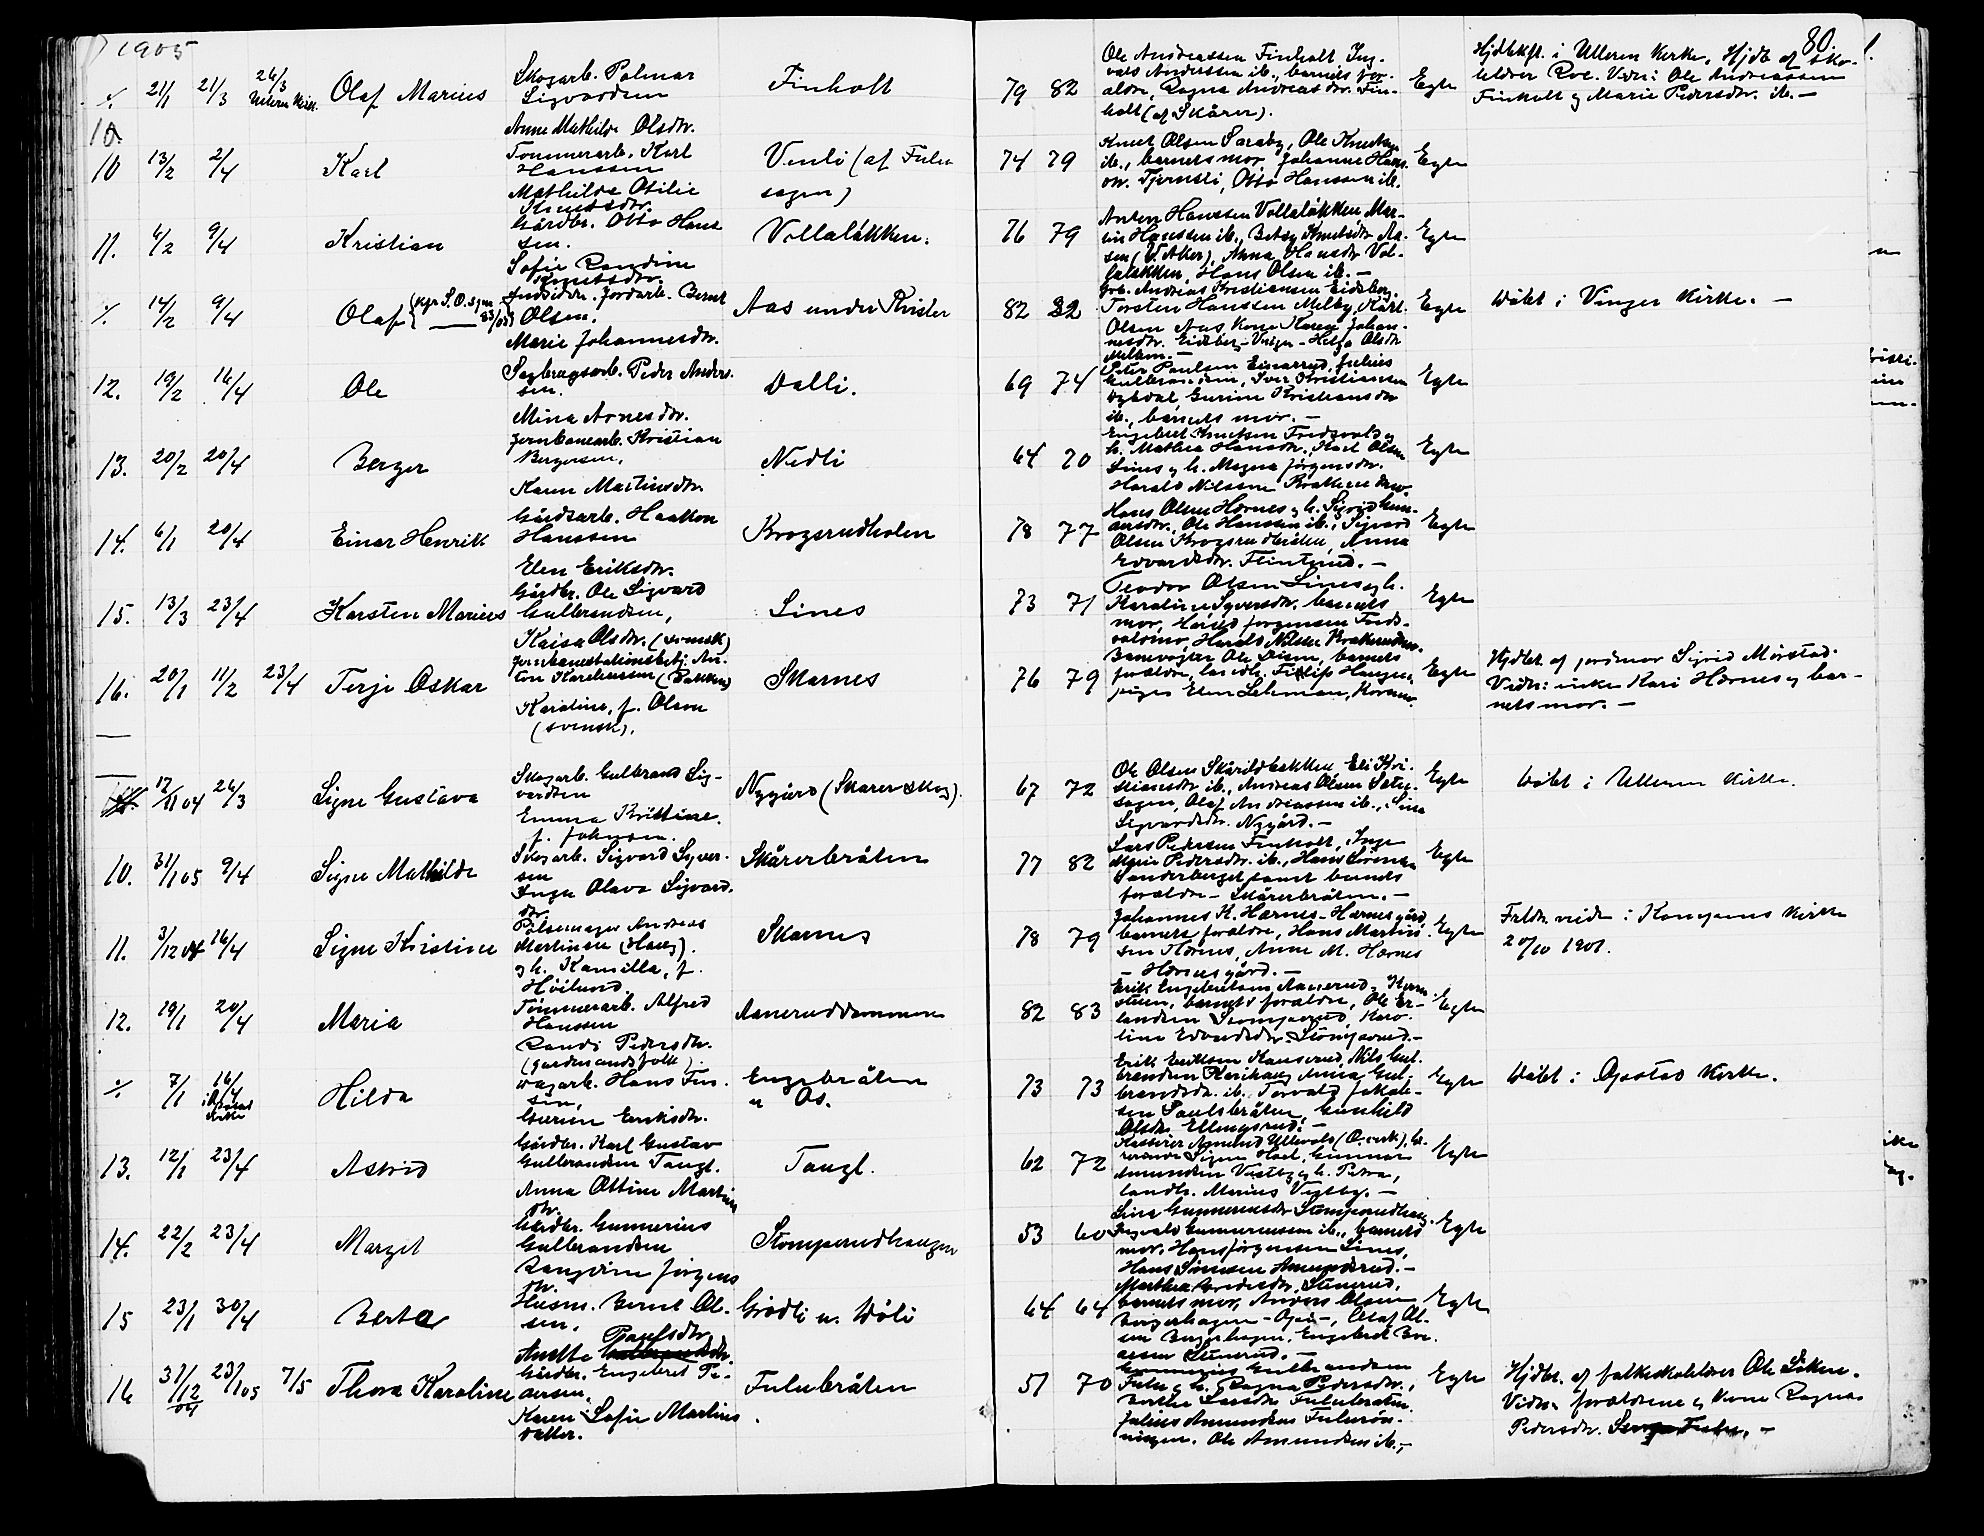 1905
80.
%. 21/1 21/3 26/3 Ullern Kirke. Olaf Marius
Skogarb. Palmar
Sigvardsen
Anne Mathilde Olsdtr.
Finholt
79 82
Ole Andreassen Finholt, Ing-
vald Andersen ib., barnets for-
ældre, Ragna Andreasdtr. Fin-
holt (af Skårer).
Egte
Hjdbkft. i Ullern Kirke. Hjdb. af sko-
lelærer Roe. Vidn: Ole Andreassen
Finholt og Marie Pedersdtr. ib. —
10.
10 13/2 2/4 Karl
Tømmerarb. Karl
Hanssen
Mathilde Otilie
Knutsdtr.
Venli (af Fulu
sagen)
74 79
Knut Olsen Saraby, Ole Knutsen
ib., barnets mor, Johanne Hans-
dtr. Tjernsli, Otto Hanssen ib.
Egte
11. 6/2 9/4 Kristian
Gårdbr. Otto Hans
sen.
Sofie Randine
Knutsdtr.
Vollaløkken.
76 79
Anton Hanssen Vollaløkken, Mar-
tin Hanssen ib., Betsy Knutsdtr. Aa-
sen (V. Aker), Anna Hansdtr. Vol-
laløkken, Hans Olsen ib. —
Egte
%. 14/2 9/4 Olaf
Indsidder. Jordarb. Bernt
Olsen.
Marie Johannesdtr.
Aas under Kvisler
82 82
Gbr. Andreas Kristiansen Eidsberg,
Torsten Hanssen Melby, Karl
Olsen Aas, Kone Karen Johan-
nesdtr. Eidsberg - Vinger - Helga Olsdtr.
Melbm. —
Egte
Døbt i Vinger Kirke. —
12. 19/2 16/4 Ole
Sagbrugsarb. Peder Anders
sen.
Mina Arnesdtr.
Dalli.
69 74
Peter Paulsen Einarrud, Julius
Gulbrandsen, Iver Kristiansen
Dybdal, Gurine Kristiansdtr
ib., barnets mor. —
Egte
13. 20/2 20/4 Berger
Jernbanearb. Kristian
Bergersen.
Karen Martinsdtr.
Nedli
64 70
Engebret Knutsen Fredsvold og
h. Mathea Hansdtr., Karl Olsen
Sines og h. Magna Jørgensdtr.
Harald Nilssen Bratterudmo.
Egte
14. 6/1 20/4 Einar Henrik
Gårdsarb. Haakon
Hanssen
Elen Eriksdtr.
Krogsrudholen
78 77
Hans Olsen Hernes og h. Sigrid Gun-
dersdtr., Ole Hanssen ib., Sigvard
Olsen Krogsrudholen, Anna
Edvardsdtr. Flintrud. —
Egte
15. 13/3 23/4 Karsten Marius
Gårdbr. Ole Sigvard
Gulbrandsen,
Kaisa Olsdtr. (svensk)
Sines
73 71
Teodor Olsen Sines og h.
Karoline Syversdtr. barnets
mor, Harald Jørgensen Freds-
voldmo, Harald Nilsen Brattrudmo.
Egte
16. 20/1 11/2 23/4 Terje Oskar
Jernbanestationsbetj. An-
ton Karelinssen (Bakken)
Karoline, f. Olson
(svensk).
Skarnes
76 79
Banevogter Ole Disen, barnets
forældre, landh. Fillip Haugen,
piges Elen Lehman, Korsmo.
Egte
Hjdbt. af jordmor Sigrid Mørstad.
Vidn: enke Kari Hernes og bar-
nets mor. —
17/11 04 26/3 Signe Gustava
Skogarb. Gulbrand Sig-
vardsen
Emma Kristine
f. Johnsen.
Nygård (Skarer skog).
67 72
Ole Olsen Skårildbakken, Eli Kri-
stiansdtr ib., Andreas Olsen Seter-
sagen, Olaf Andreassen ib., Lina
Sigvardsdtr. Nygård. —
Egte
Døbt i Ullern Kirke.
10. 31/1 05 9/4 Signe Mathilde
Skogarb. Sigvard Syver-
sen
Inga Olava Sigvard.
dtr.
Skårerbråten
77 82
Lars Pedersen Finholt, Inge
Marie Pedersdtr. ib., Hans Simensen
Sanderberget samt barnets
forældre - Skårerbråten. —
Egte
11. 3/12 04 16/4 Signe Kristine
Pølsemager Andreas
Martinsen (Haug).
og h. Kamilla, f.
Høilund.
Skarnes
78 79
Johannes K. Hernes - Hernes gård
barnets forældre, Hans Martin-
sen Hernes, Anne M. Hernes
- Hernes gård. —
Egte
Frldr. viede i Kongens Kirke
20/10 1901.
12. 19/1 20/4 Maria
Tømmerarb. Alfred
Hanssen
Randi Pedersdtr.
(gardermandsfolk).
Aaneruddammen
82 83
Erik Engebretsen Aanerud, Kjern-
stuen, barnets forældre, Ole Er-
landsen Stomperud, Karo-
line Edvardsdtr. Stomperud. —
Egte
% 7/1 16/4 i Opstad Kirke Hilda
Dagarb. Hans Jen-
sen.
Gurine Eriksdtr.
Engebråten
u Os.
73 73
Erik Eriksen Kanserud, Nils Gul-
brandsen Karihaug, Anna Gul-
brandsdtr. ib., Torvald Jakob-
sen Paulsbråten, Gunhild
Olsdtr. Ellingsrud. —
Egte
Døbt i Opstad Kirke.
13. 12/1 23/4 Astrid
Gårdbr. Karl Gustav
Gulbrandsen Tangl.
Anna Ottine Martins
dtr.
Tangl.
62 72
Kasserer Amund Ullevold (O.verk), hr.
Signe Hoel, Gunnar
Amundsen Vestby og h. Petra,
landh. Marius Vestby. —
Egte
14. 22/2 23/4 Margit
Gårdbr. Gunnerius
Gulbrandsen
Rangdine Jørgens
dtr.
Stomperudhaugen
53 60
Lina Gunneriusdtr Stomperudhaug.
Ingvald Gunneriussen ib., barnets
mor, Hans Jørgensen Sines,
Hans Simensen Amundrud. —
Egte
15 23/1 30/4 Berta
Husm. Bernt Ol-
sen.
Anette Paulsdtr.
Grødli u. Døli
64 64
Marthea Bredesdtr. Stuerud,
barnets mor, Anders Olsen
Borgerhagen - Opst-, Olaf Ol-
sen Borgerhagen, Engebret Bre-
desen Stuerud. —
Egte
16 31/12 04 23/1 05 7/5 Thora Karoline
Gårdbr. Engebret Pe-
dersen.
Karen Sofie Martins
datter.
Fulubråten
51 70
Gunnerius Gulbrandsen
Fulu og h. Ragna Pedersdtr.,
Berthe Larsdtr Fulubråten,
Julius Amundsen Fulurøn-
ningen. Ole Amundsen ib. —
Egte
Hjdbt. af folkeskolelærer Ole Løken.
Vidn. forældrene og Kone Ragna
Pedersdtr. —